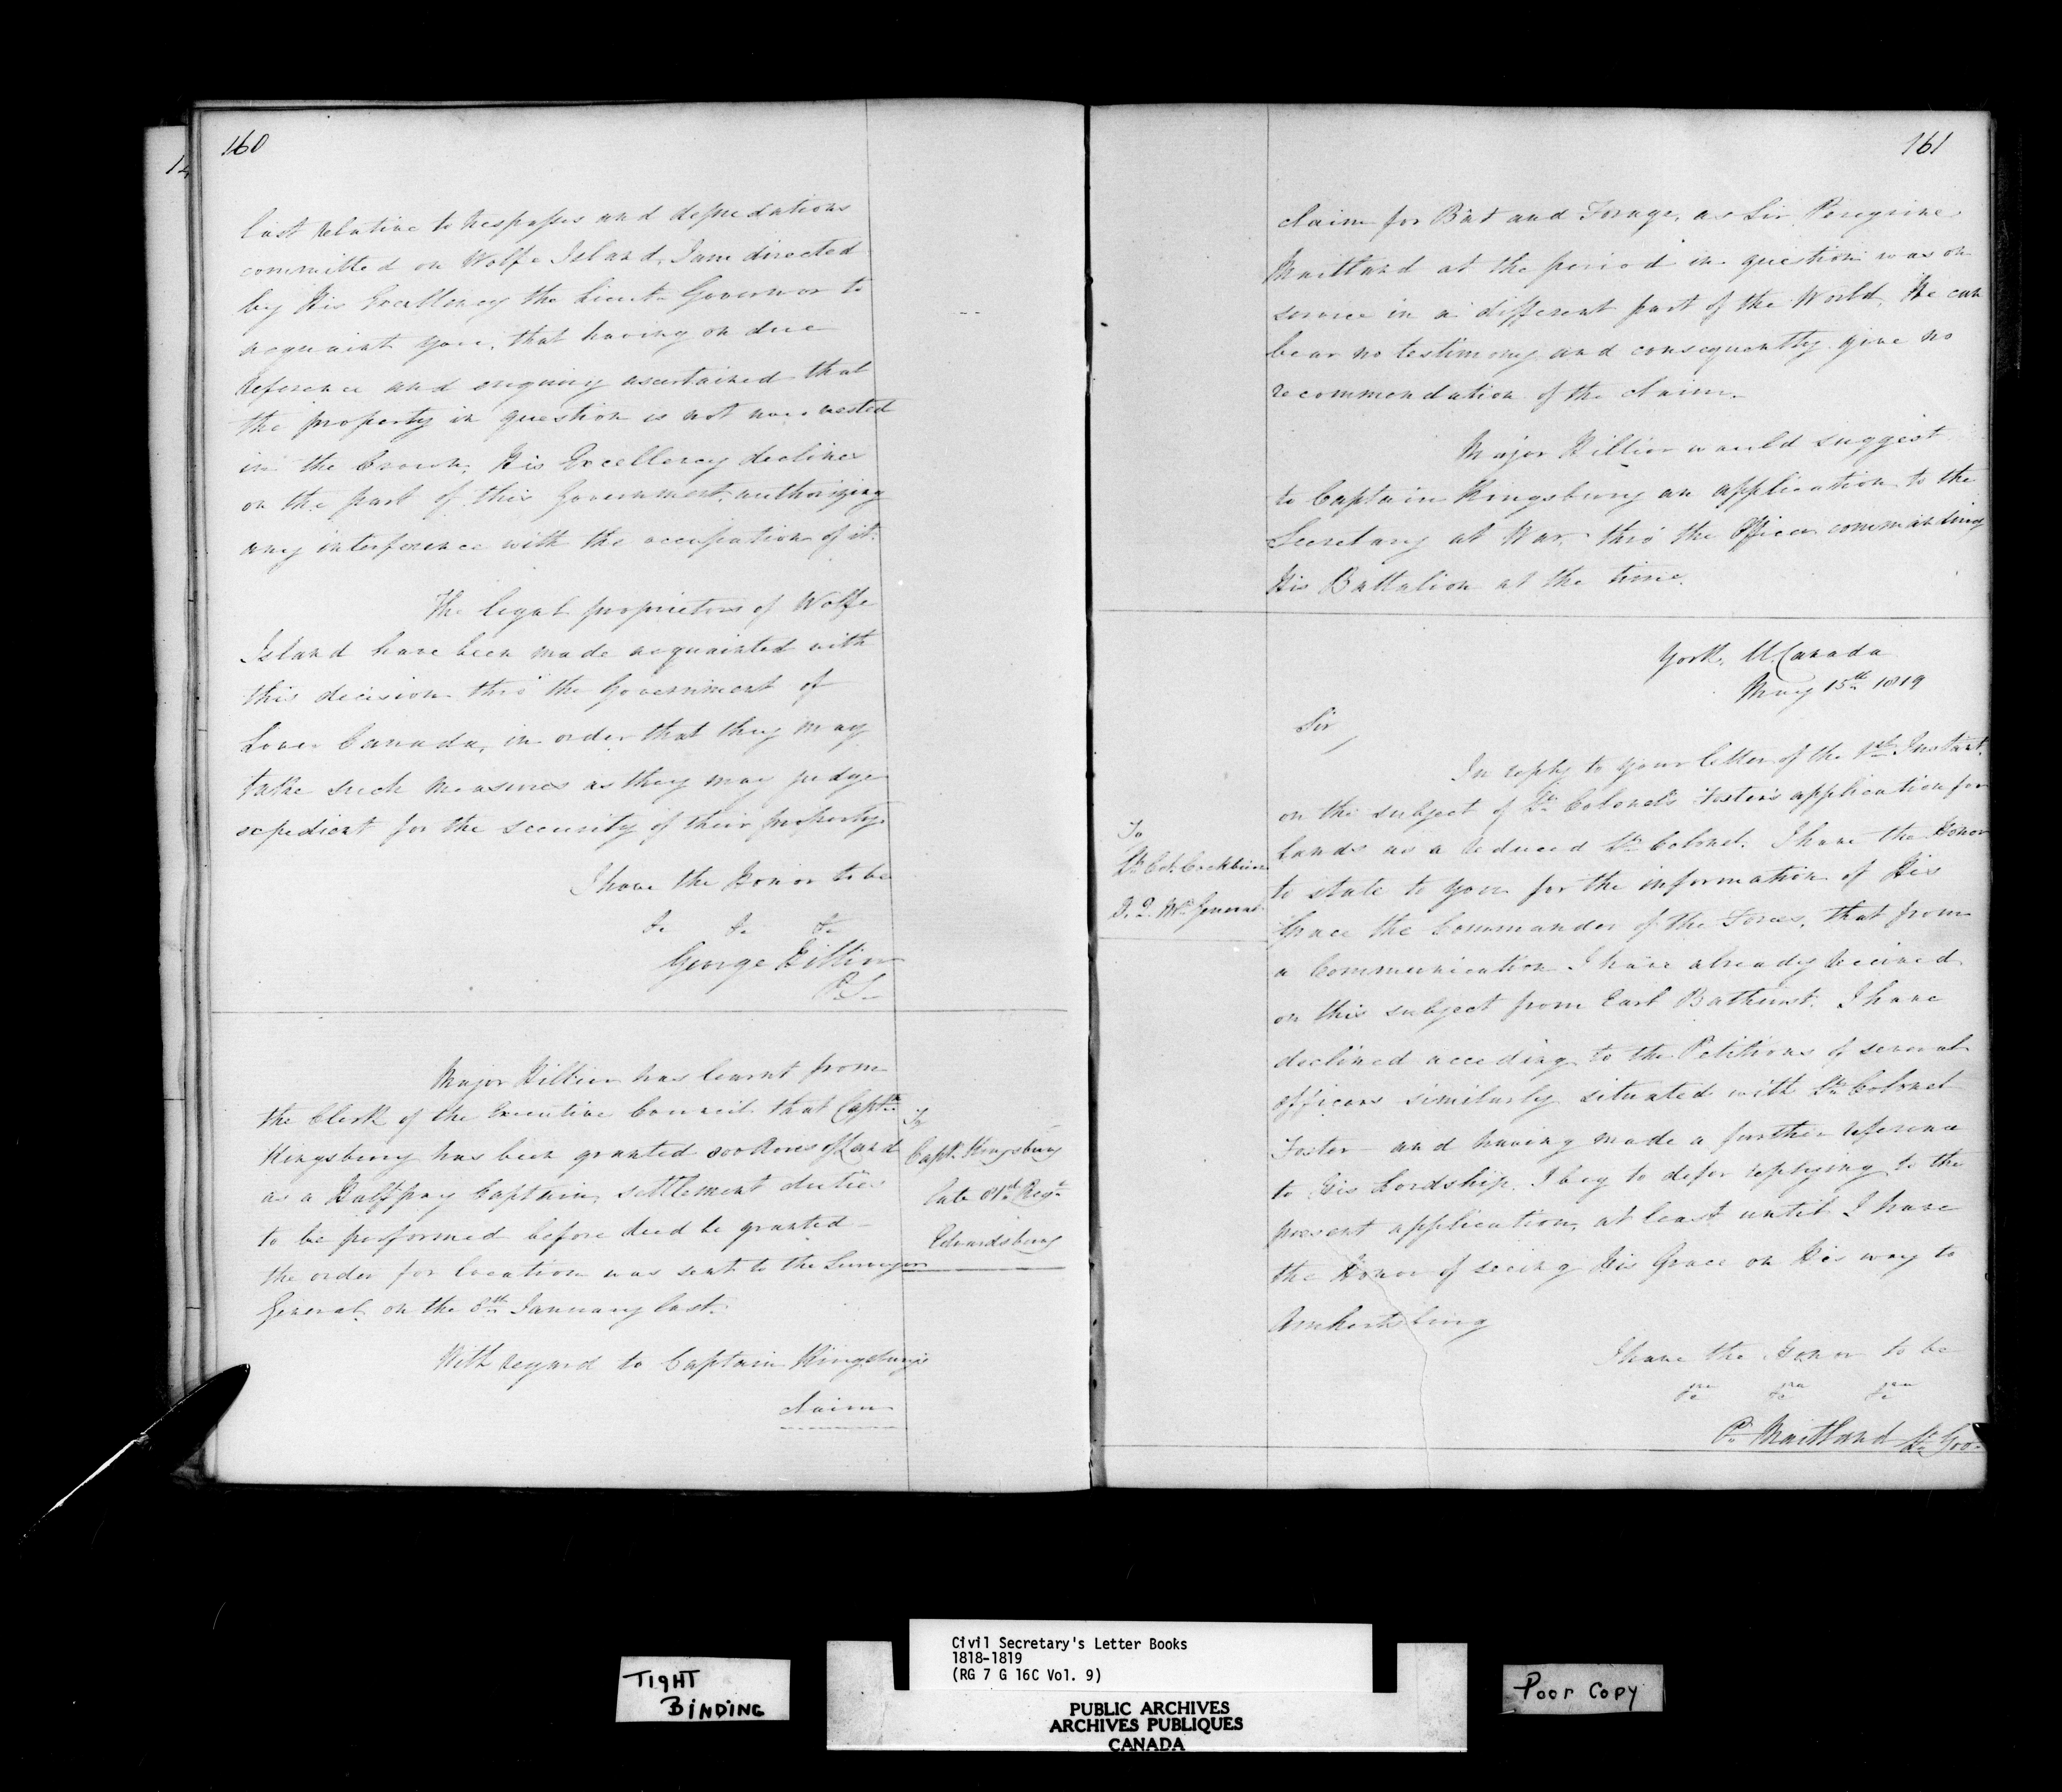 160
last relative to trespasses and depredations
committed on Wolfe Island, I am directed
by His Excellency the Lieut. Governor to
acquaint you, that having on due
reference and enquiry ascertained that
the property in question is not now vested
in the Crown, His Excellency declines
on the part of this Government, authorizing
any interference with the occupation of it.
The legal proprietors of Wolfe
Island have been made acquainted with
this decision thro' the Government of
Lower Canada, in order that they may
take such measures as they may judge
expedient for the security of their property.
I have the Honor to be
&c &c &c
George Hillier
P.S.
Major Hillier has learnt from
the Clerk of the Executive Council that Captn
Kingsbury has been granted 800 Acres of Land
as a Half pay Captain, settlement duties
to be performed before deed be granted
the order for location was sent to the Surveyor
General on the 8th January last.
To
Captn Kingsbury
late 81st Regt
Edwardsburg
With regard to Captain Kingsbury's
claim
161
claim for Bat and Forage, as Sir Peregrine
Maitland at the period in question was on
service in a different part of the World, He can
bear no testimony and consequently give no
recommendation of the claim.
Major Hillier would suggest
to Captain Kingsbury an application to the
Secretary at War, thro' the Officer commanding
His Battalion at the time.
York, U. Canada
May 15th 1819
Sir
To
Lt Col. Cockburn
D. Q. Mr General
In reply to your letter of the 1st Instant.
on the subject of Lt Colonel Foster's application for
Lands as a reduced Lt Colonel. I have the Honor
to state to you for the information of His
Grace the Commander of the Forces, that from
a Communication I have already received
on this subject from Earl Bathurst. I have
declined acceding to the Petitions of several
officers similarly situated with Lt Colonel
Foster and having made a further reference
to His Lordship. I beg to defer replying to the
present application, at least until I have
the Honor of seeing His Grace on His way to
Amherstburg
I have the Honor to be
&c &c &c
P. Maitland Lt Gov.
TIGHT
BINDING
Civil Secretary's Letter Books
1818-1819
(RG 7 G 16C Vol. 9)
PUBLIC ARCHIVES
ARCHIVES PUBLIQUES
CANADA
Poor Copy